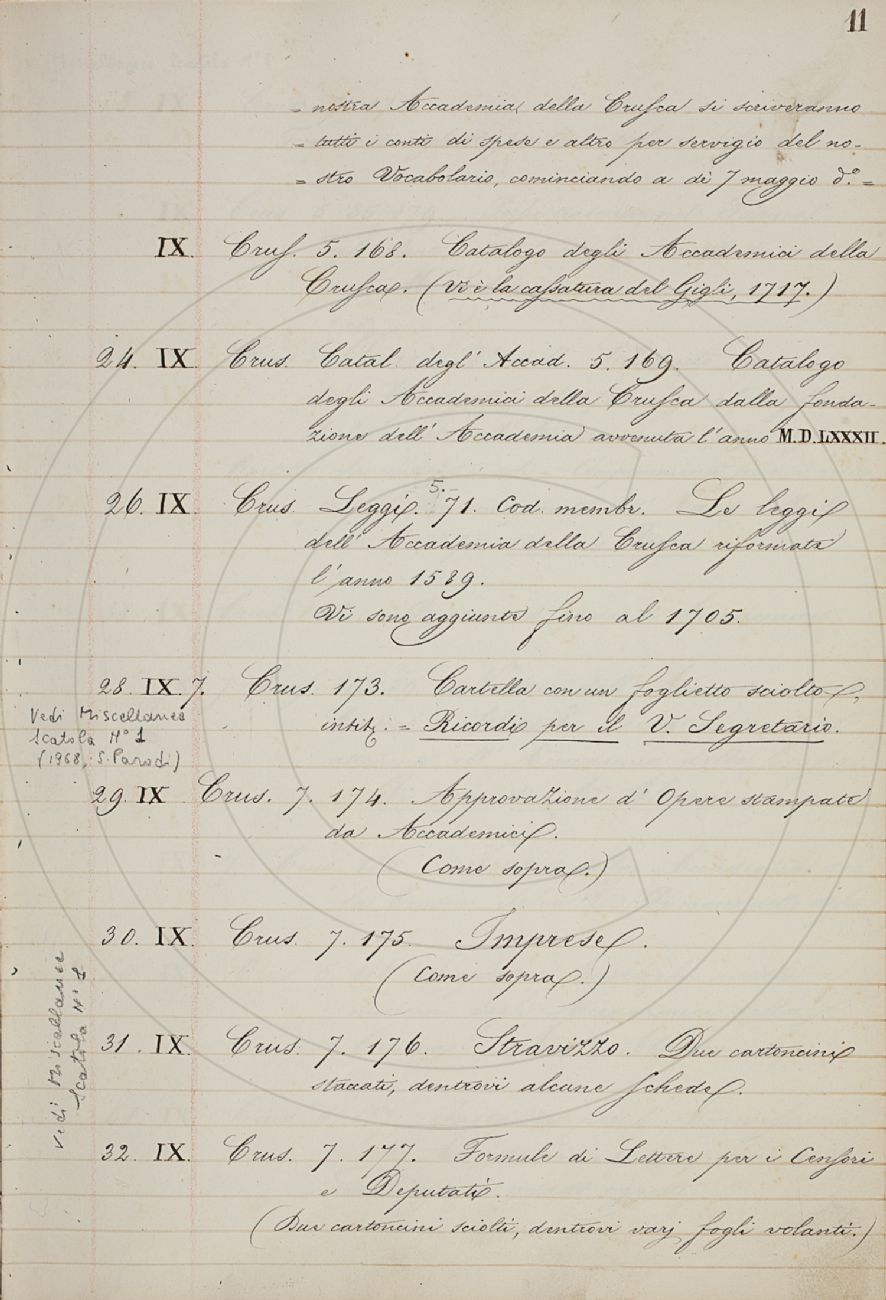 11
= nostra Accademia della Cruſca si scriveranno
= tutti i conti di spese e altro per servigio del no-
= stro Vocabolario, cominciando a dì 7 maggio d.° =
IX. Cruſ. 5. 168. Catalogo degli Accademici della
Cruſca. (Vi è la caſsatura del Gigli, 1717.)
24. IX. Crus. Catal. degl' Accad. 5. 169. Catalogo
degli Accademici della Cruſca dalla fonda-
zione dell' Accademia avvenuta l'anno M.D.LXXXII.
26. IX. Crus. Leggi. 5. 71. Cod. membr. Le leggi
dell' Accademia della Cruſca riformate
l'anno 1589.
Vi sono aggiunte fino al 1705.
28. IX. 7. Crus. 173. Cartella con un foglietto sciolto,
Vedi Miscellanea
intit. = Ricordi per il V. Segretario.
Scatola N° 1
(1968, S. Parodi)
29. IX Crus. 7. 174. Approvazione d' Opere stampate
da Accademici.
(Come sopra.)
30. IX. Crus. 7. 175. Imprese.
(Come sopra.)
Vedi Miscellanee
Scatola N° 1
31. IX. Crus. 7. 176. Stravizzo. Due cartoncini
staccati, dentrovi alcune ſchede.
32. IX. Crus. 7. 177. Formule di Lettere per i Cenſori
e Deputati.
(Due cartoncini sciolti, dentrovi varj fogli volanti.)